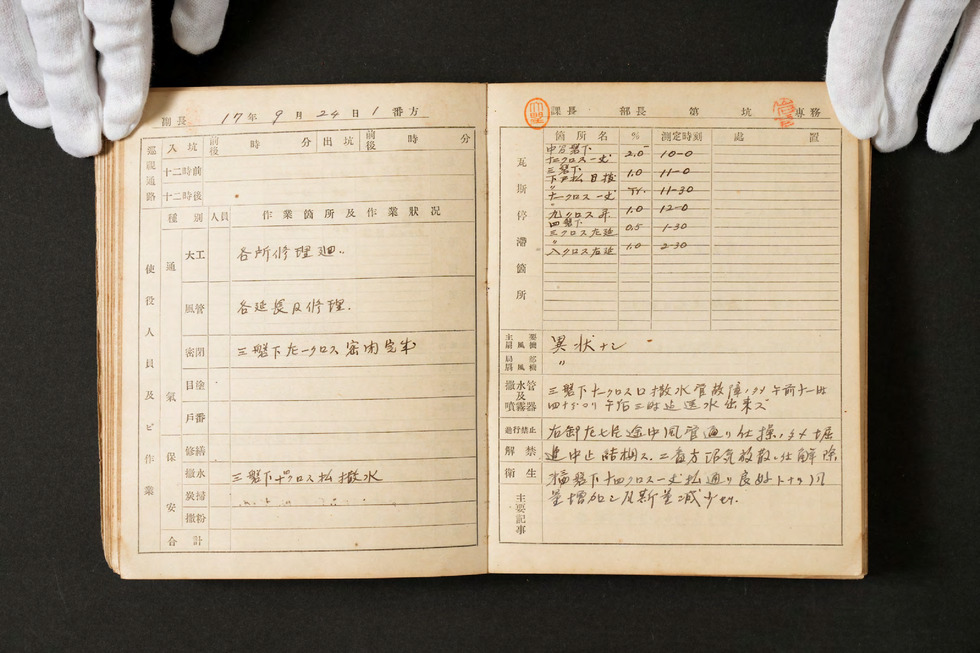 副長 17年9月24日1番方
巡視通路 入坑 前後 時 分 出坑 前後 時 分
十二時前
十二時後
使役人員及ビ作業
種別 人員 作業箇所及作業狀況
通氣
大工 各所修理廻..
風管 各延長及修理.
密閉 三盤下左一クロス密閉完成
目塗
戶番
保安
修繕
撒水 三盤下 クロス払撒水
炭掃
撒粉
合計
課長 部長 第 坑 專務
瓦斯停滯箇所
箇所名 % 測定時刻 處置
2.0 10-0
三盤下
1.0 11-0
〃
クロス一丈 Tr. 11-30
〃
九クロス昇 1.0 12-0
四盤下
三クロス左延 0.5 1-30
〃
クロス右延 1.0 2-30
主要扇風機 異狀ナシ
局部扇風機 〃
撒水管及噴霧器
三盤下 クロス口撒水管故障ノタメ午前十一時
四十分ヨリ午后三時迄送水出来ズ
進行禁止 解禁
右卸左七片途中風管通リ仕操ノタメ堀
進中止 二番方 放散 解除
衛生
主要記事
盤下十四クロス一丈払通リ良好トナリ風
量增加シ瓦斯量減少セリ.